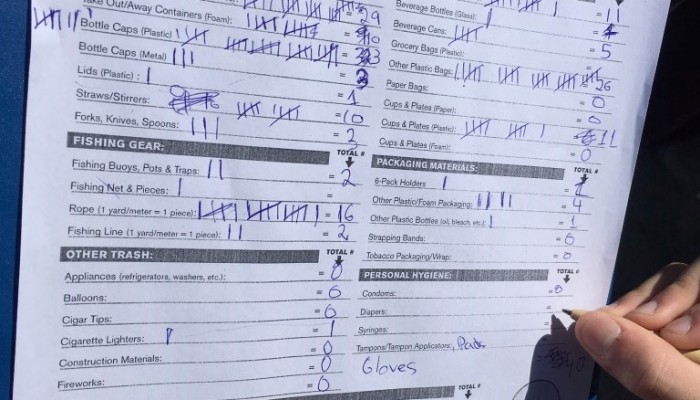 Take Out/Away Containers (Foam): = 29
Bottle Caps (Plastic)
Bottle Caps (Metal)
Lids (Plastic) :
Straws/Stirrers: = 1
Forks, Knives, Spoons: = 10
= 3
FISHING GEAR: TOTAL #
Fishing Buoys, Pots & Traps: = 2
Fishing Net & Pieces: =
Rope (1 yard/meter = 1 piece): = 16
Fishing Line (1 yard/meter = 1 piece): = 2
OTHER TRASH: TOTAL #
Appliances (refrigerators, washers, etc.): = 0
Balloons: = 0
Cigar Tips: = 0
Cigarette Lighters: = 1
Construction Materials: = 0
Fireworks: = 0
Beverage Bottles (Glass): = 11
Beverage Cans:
Grocery Bags (Plastic): = 5
Other Plastic Bags: = 26
Paper Bags: = 0
Cups & Plates (Paper): = 0
Cups & Plates (Plastic): = 11
Cups & Plates (Foam): = 0
PACKAGING MATERIALS: TOTAL #
6-Pack Holders
Other Plastic/Foam Packaging: = 4
Other Plastic Bottles (oil, bleach, etc.): = 1
Strapping Bands: = 0
Tobacco Packaging/Wrap: = 0
PERSONAL HYGIENE: TOTAL #
Condoms: = 0
Diapers: =
Syringes: =
Tampons/Tampon Applicators: Pads
Gloves
TOTAL #